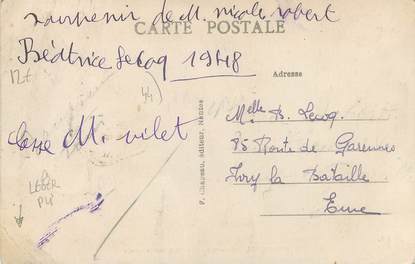 souvenir de M. nicole robert
CARTE POSTALE
Béatrice Lecoq 1948
Adresse
44
M. vilet
F. Chapeau, éditeur, Nantes
Melle B. Lecoq
85 Route de Garennes
Ivry la Bataille
Eure
LEGER